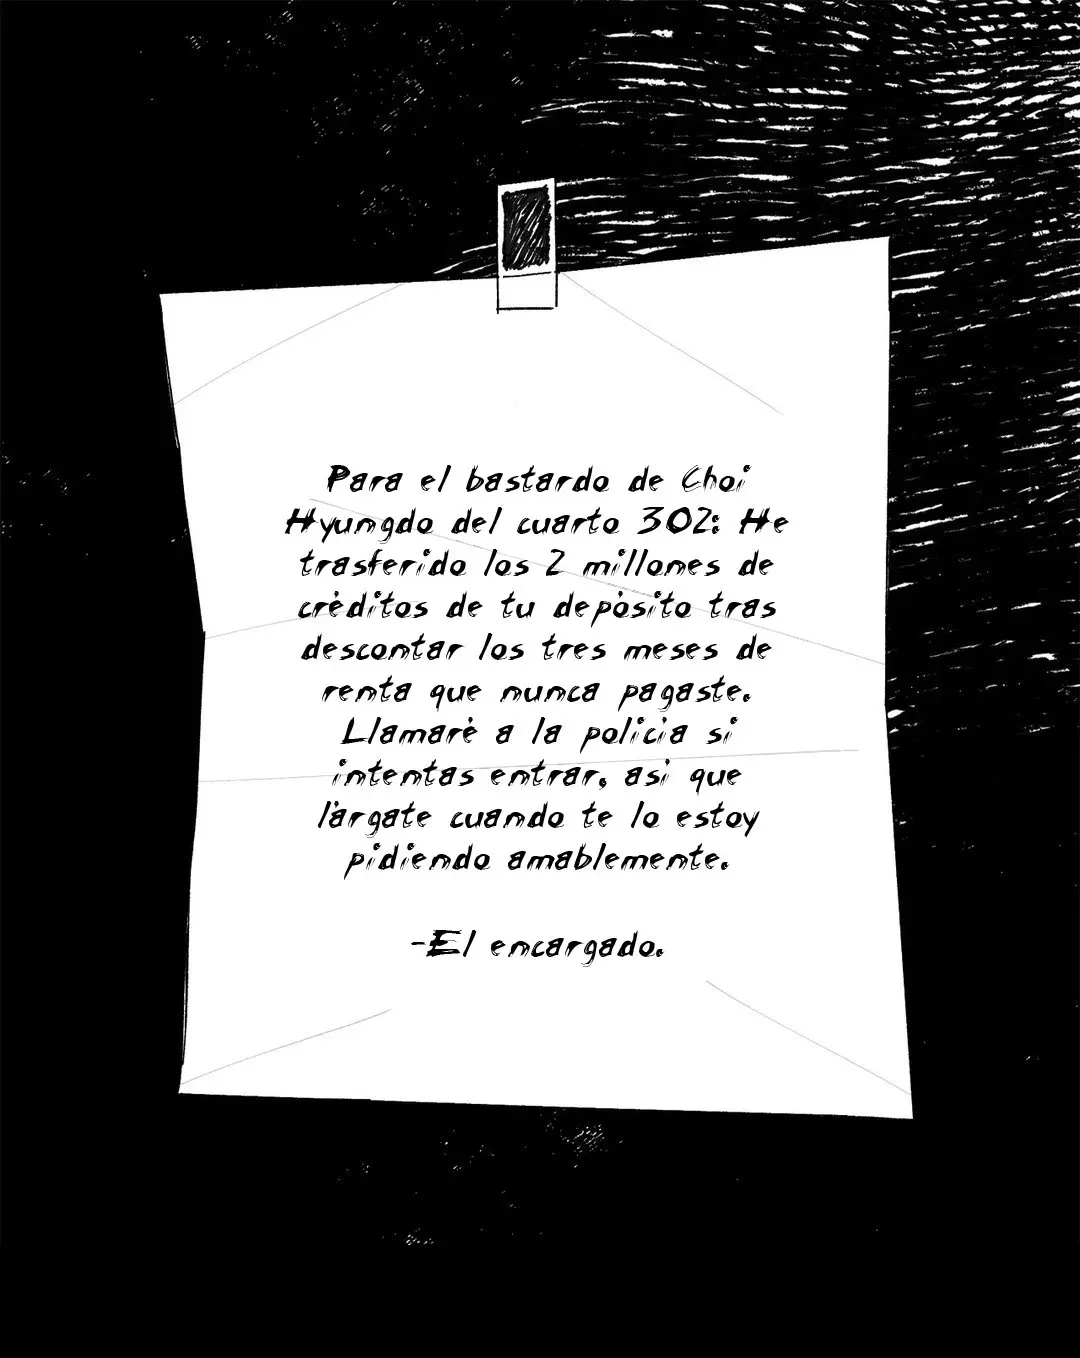 Para el bastardo de Choi
Hyungdo del cuarto 302: He
trasferido los 2 millones de
créditos de tu depósito tras
descontar los tres meses de
renta que nunca pagaste.
Llamaré a la policía si
intentas entrar, así que
lárgate cuando te lo estoy
pidiendo amablemente.
-El encargado.